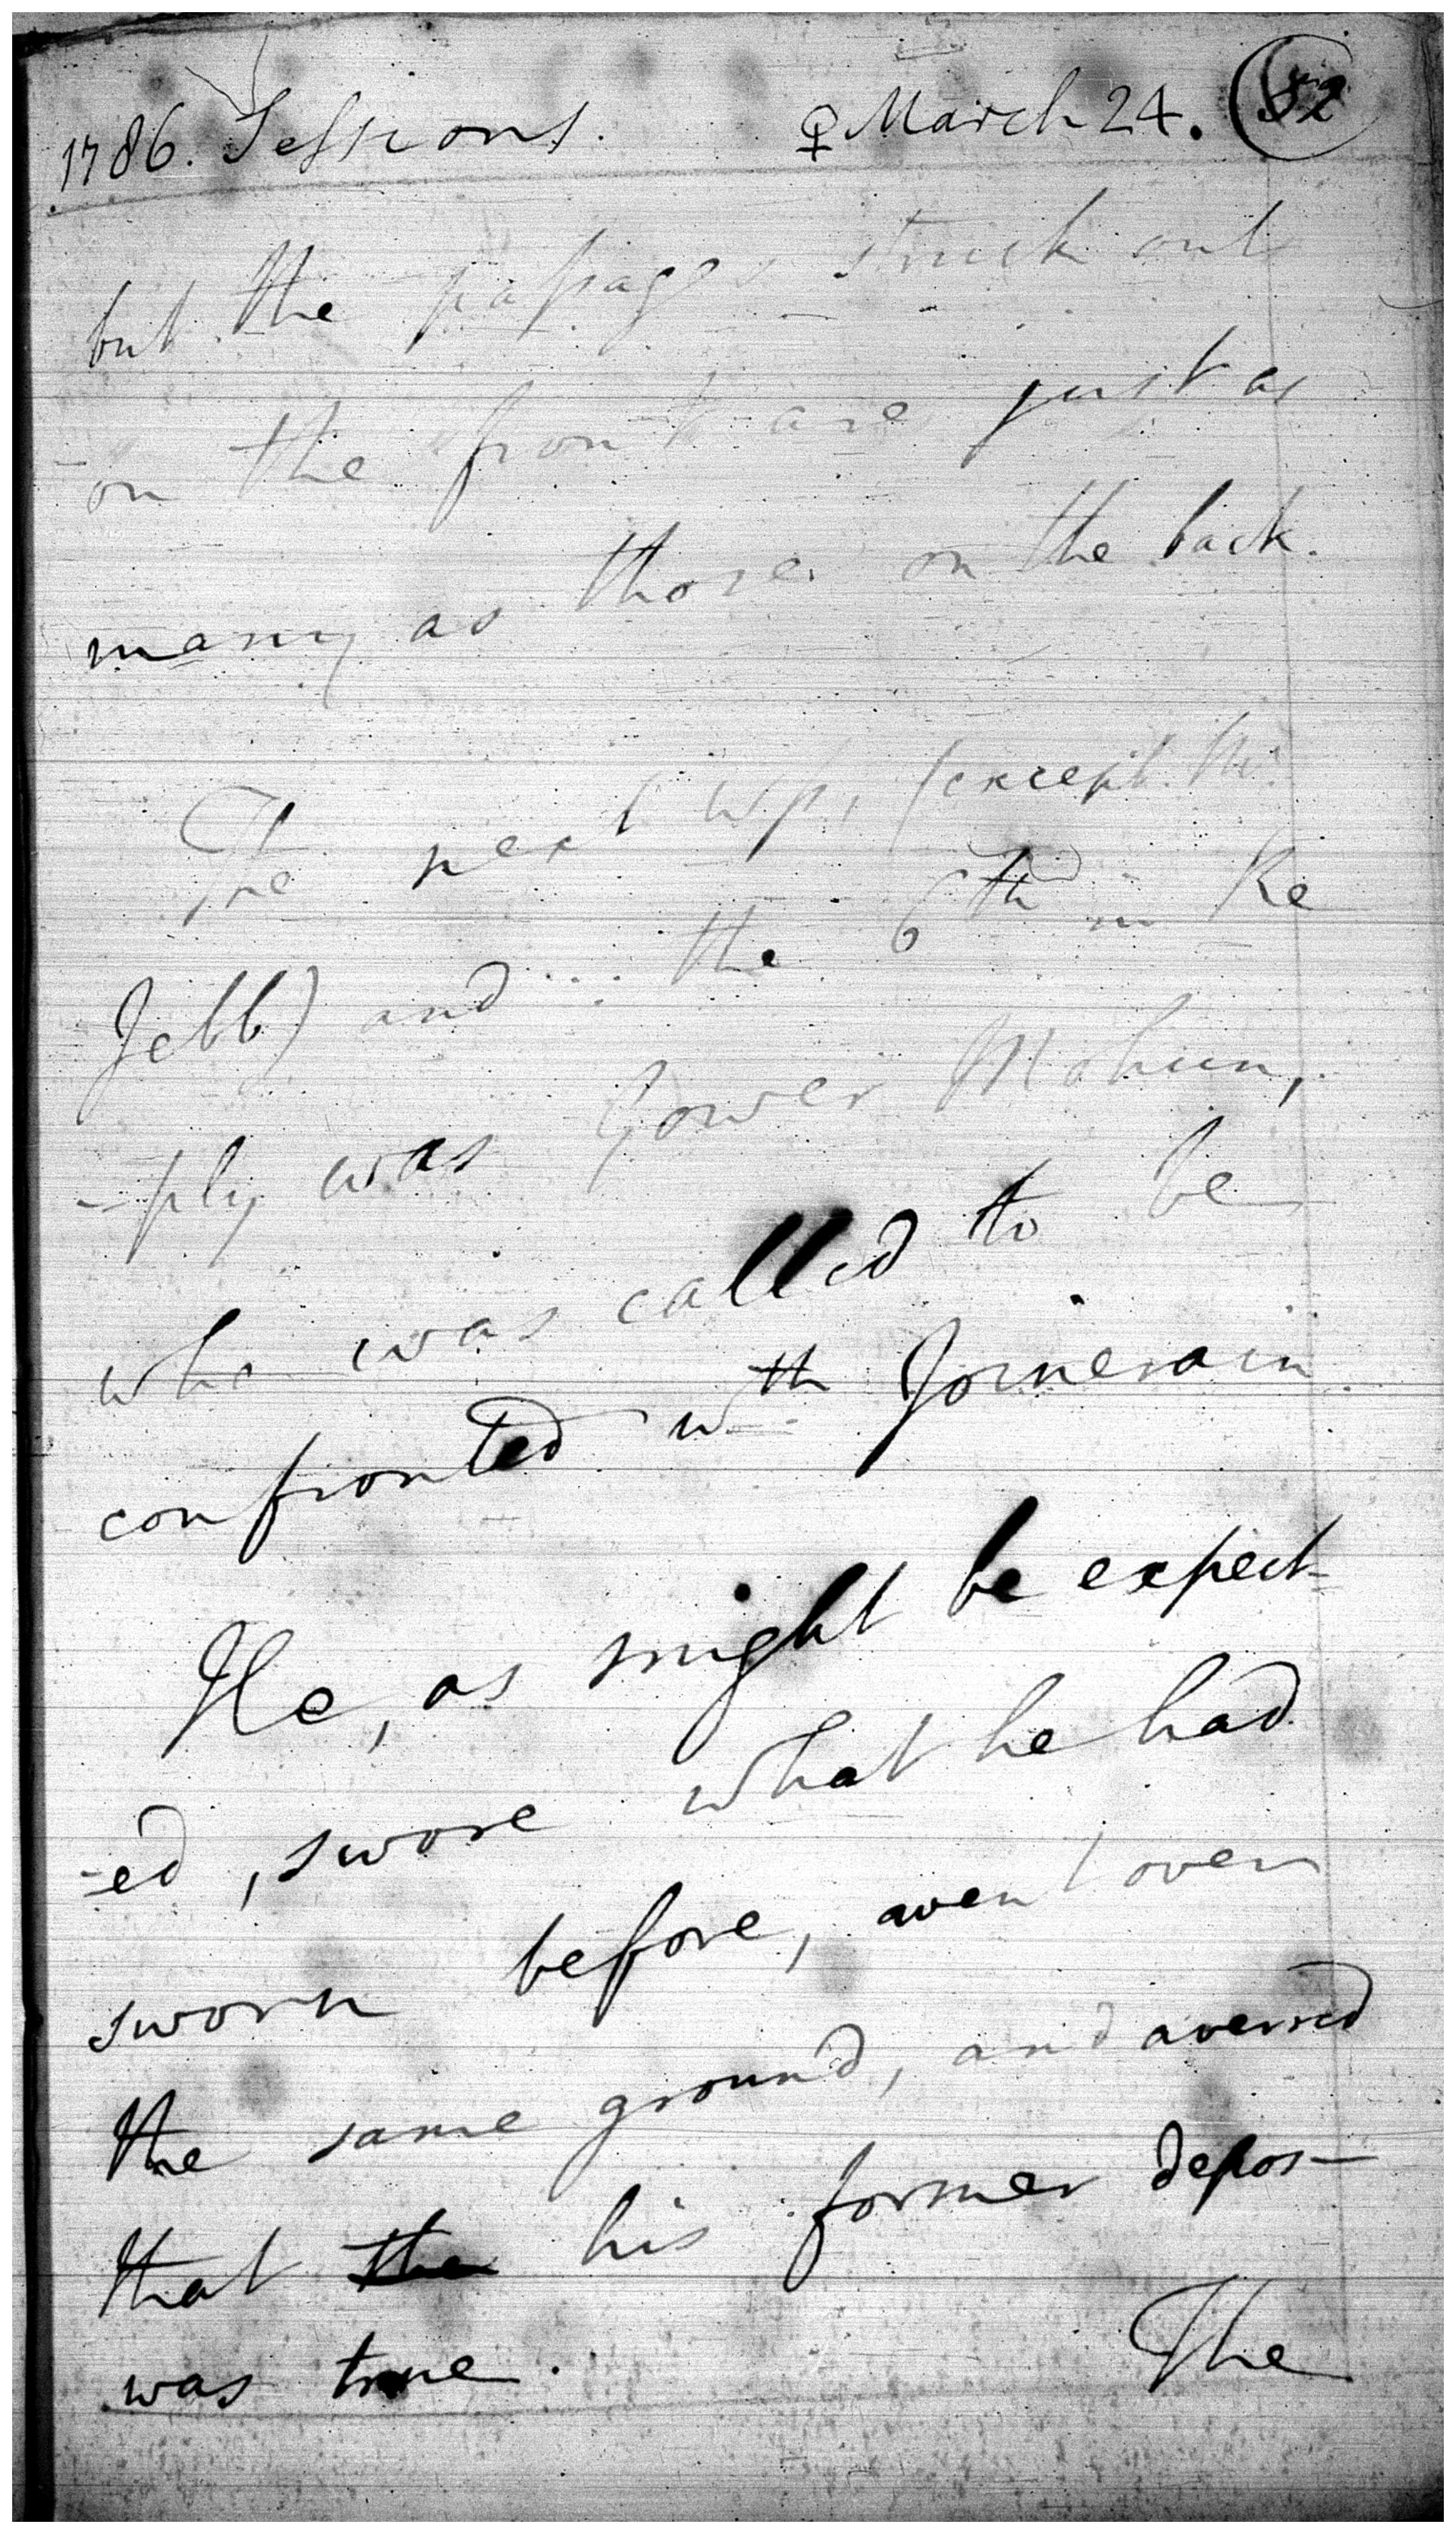 1786. Sessions. ♀ March 24. 52
but the passages struck out
on the front are just as
many as those on the back.
The next wps, (except Mr
Jebb) and ... the 6th in Re
-ply was Gower Mohun,
who was called to be
confronted wth Joinerain
He, as might be expect
-ed, swore what he had
sworn before, went over
the same ground, and averred
that the his former depos-
was true. The